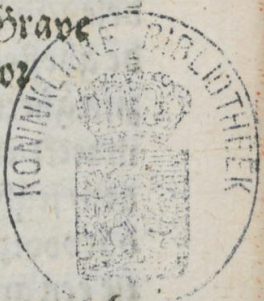 Grave
or
KONINKLIJKE BIBLIOTHEEK